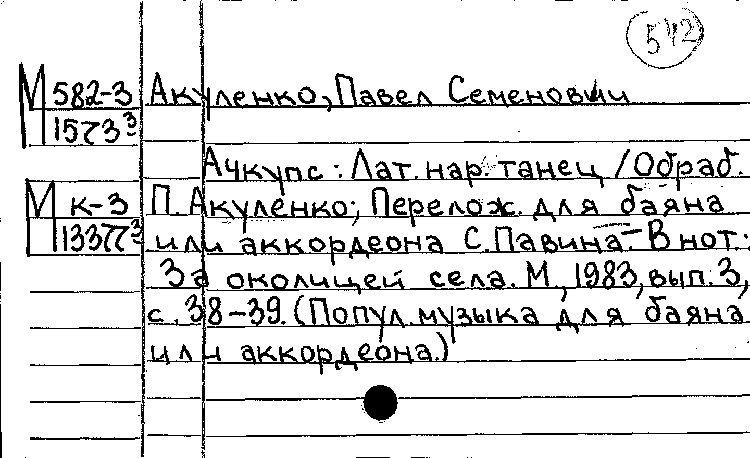 542
М 582-3 Акуленко, Павел Семенович
1573³
Ачкупс: Лат. нар. танец / Обраб.
М к-3 П. Акуленко; Перелож. для баяна
1337⁷³ или аккордеона С. Павина.- В нот.:
За околицей села. М., 1983, вып. 3,
с. 38-39. (Попул. музыка для баяна
или аккордеона.)